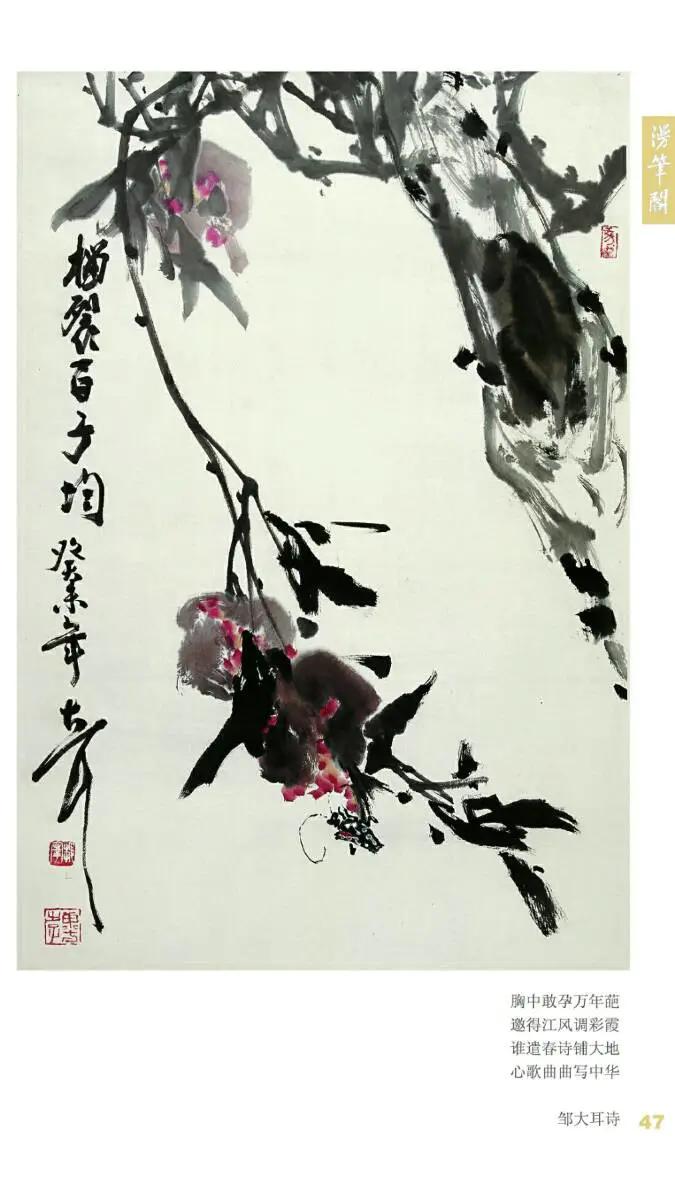 筆閣
榴裂百子均
癸未年 大耳
胸中敢孕万年葩
邀得江风调彩霞
谁遣春诗铺大地
心歌曲曲写中华
邹大耳诗
47